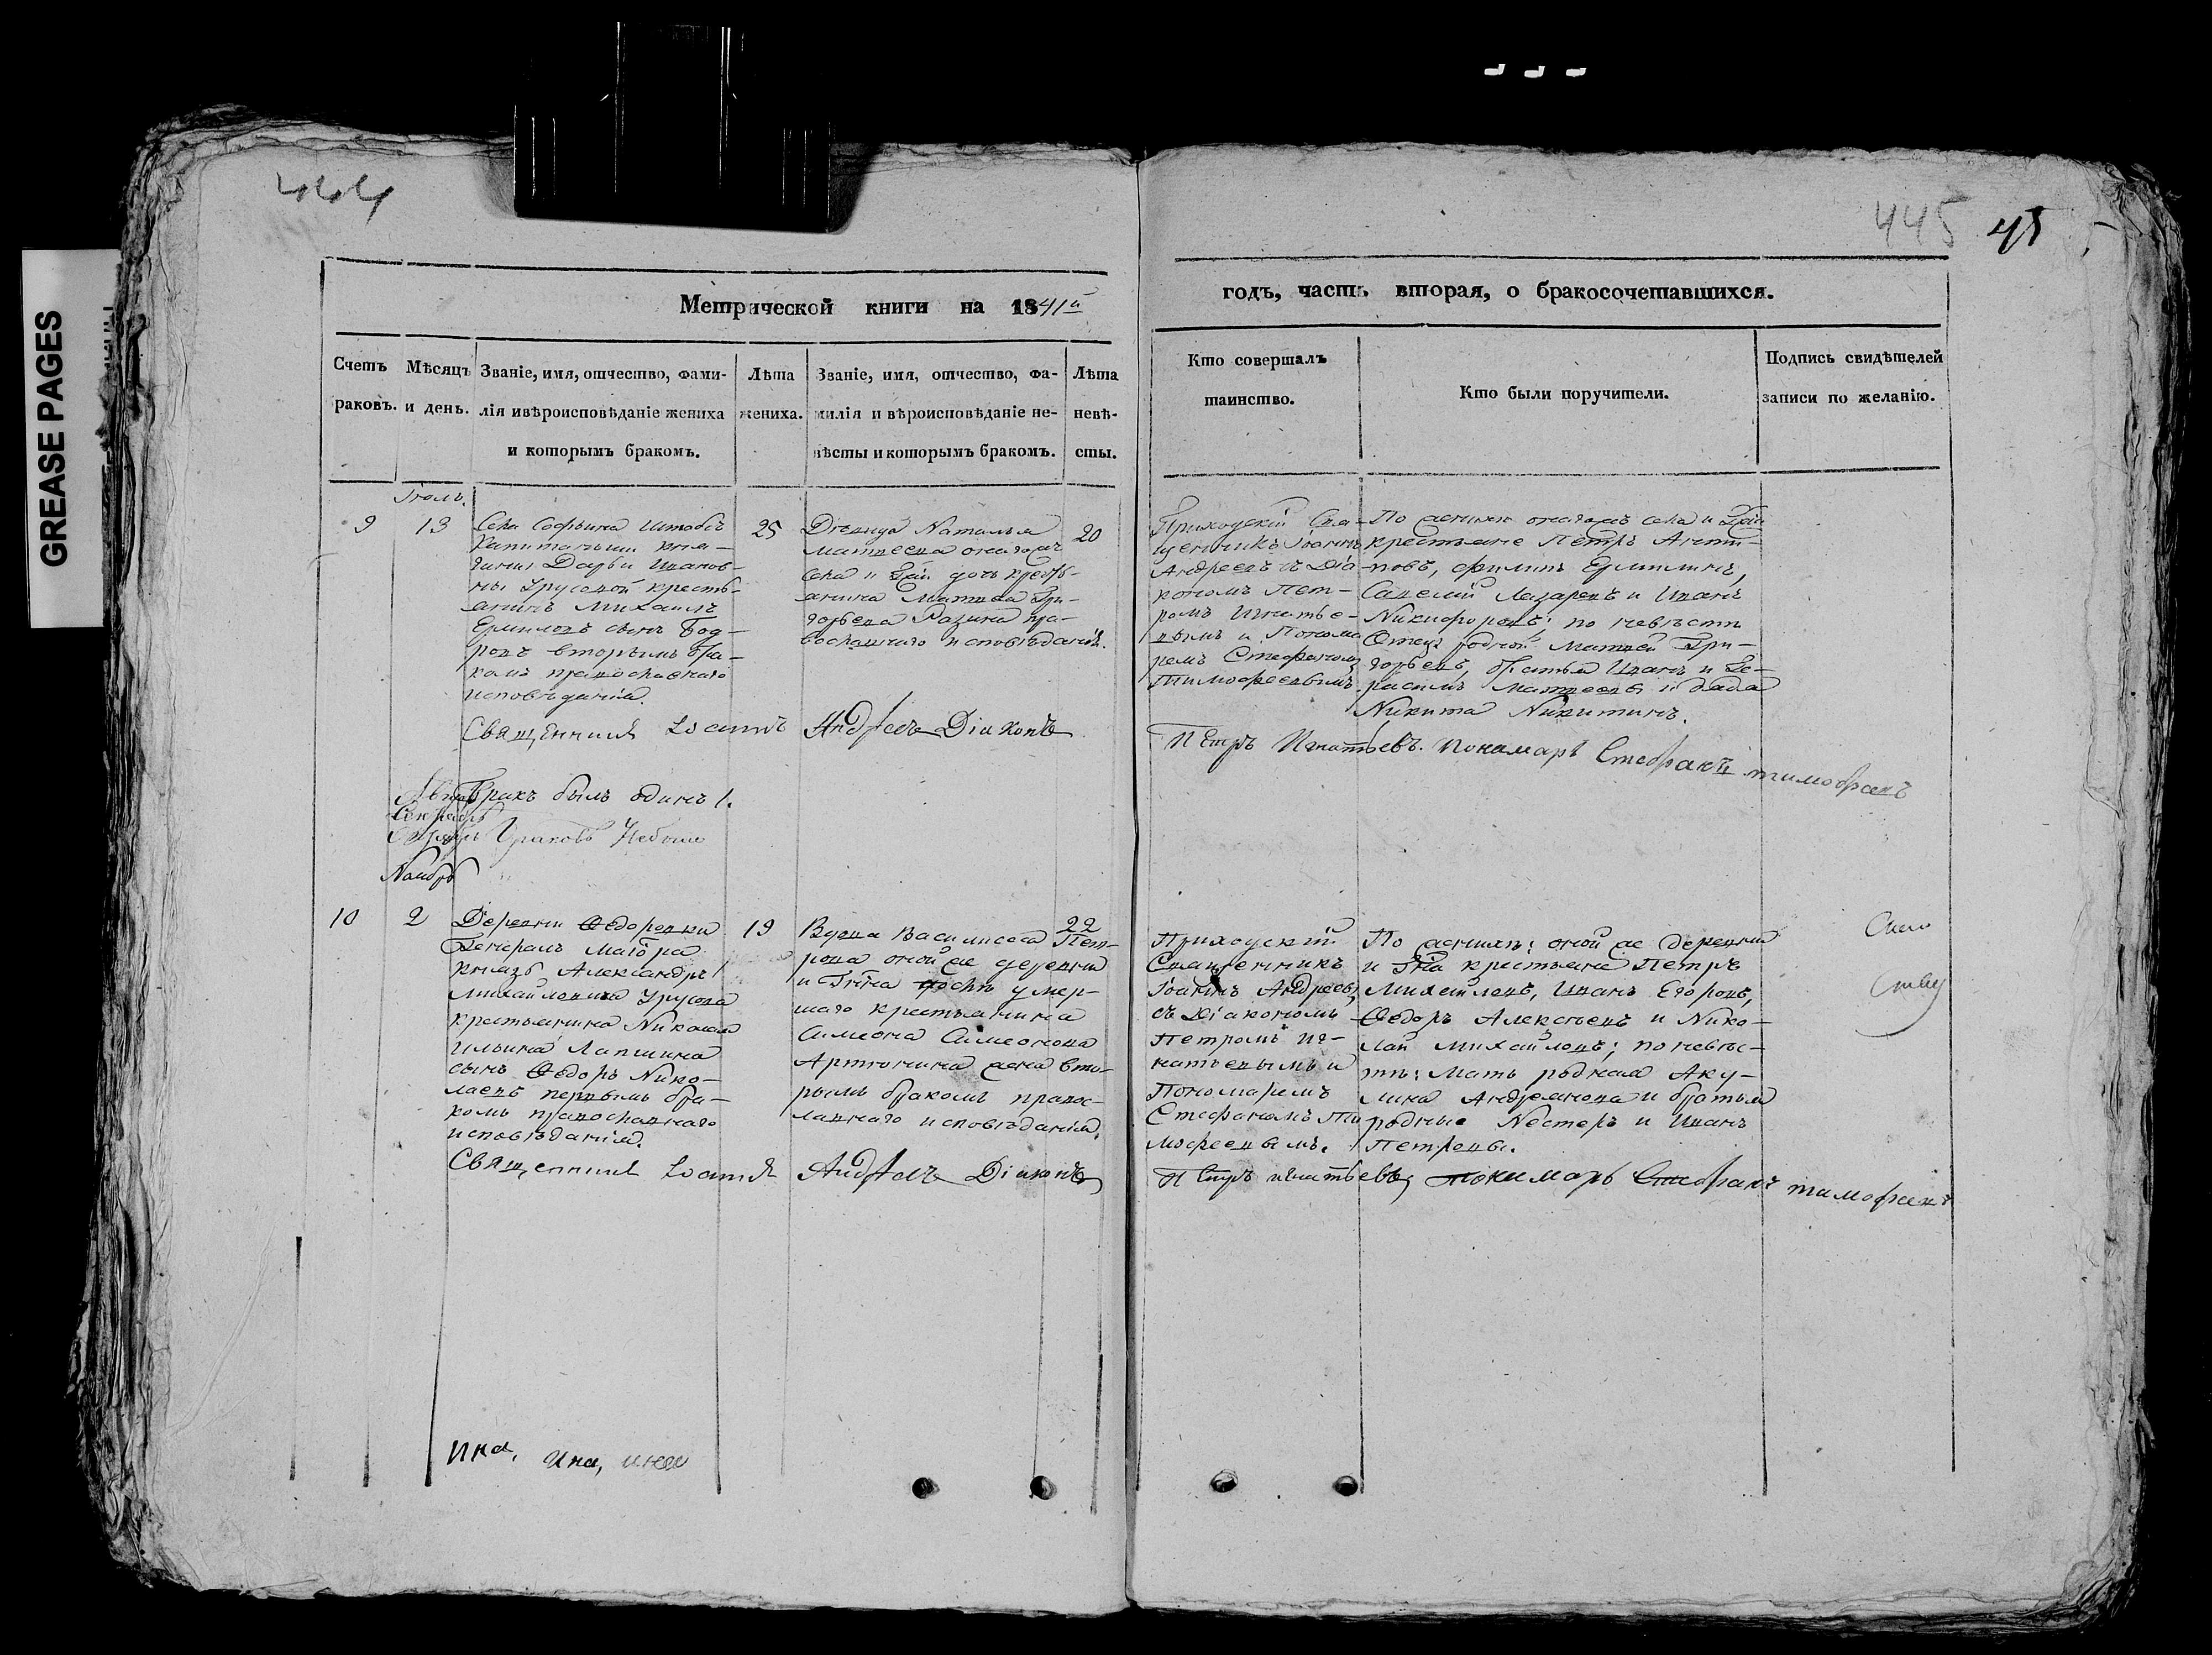 GREASE PAGES
444
445 45
Метрической книги на 1841й
годъ, часть вторая, о бракосочетавшихся.
Счетъ
раковъ.
Мѣсяцъ
и день.
Званіе, имя, отчество, фами-
лія ивѣроисповѣданіе жениха
и которымъ бракомъ.
Лѣта
жениха.
Званіе, имя, отчество, фа-
милія и вѣроисповѣданіе не-
вѣсты и которымъ бракомъ.
Лѣта
невѣ-
сты.
Кто совершалъ
таинство.
Кто были поручители.
Подпись свидѣтелей
записи по желанію.
Іюль.
9
13
Села Софьина Штабсъ
Капитанши кня-
гини Дарьи Иванов-
ны Урусовой кресть-
янинъ Михаилъ
Ермиловъ сынъ Бод-
ровъ вторымъ бра-
комъ православнаго
исповѣданія.
25
Дѣвица Наталья
Матвеева онагожъ
села и Гжи дочь кресть-
янина Матвея Гри-
горьева Разина пра-
вославнаго исповѣданія.
20
Приходскій Свя-
щенникъ Іоаннъ
Андреевъ съ Діа-
кономъ Пет-
ромъ Игнатье-
вымъ и Понома
ремъ Стефаномъ
Тимофеевымъ.
По женихѣ онагожъ села и Гжи
крестьяне Петръ Анти-
повъ, Филипъ Ермилинъ,
Савелій Лазаревъ и Иванъ
Никифоровъ; по невѣсти
Отецъ родной Матвей Гри-
горьевъ, братья Иванъ и Ге-
расимъ Матвеевы и дядя
Никита Никитинъ.
Священникъ Іоаннъ Андреевъ Діаконъ
Петръ Игнатьевъ. Пономарь Стефанъ Тимофеевъ
Августъ
Бракъ былъ одинъ 1.
Сентябрь
Октябрь Браковъ Небыло
Ноябрь
10
2
Деревни Федоровки
Генералъ Маіора
князь Александръ
Михайловича Урусова
крестьянина Николая
Ильина Лапшина
сынъ Федоръ Нико-
лаевъ первымъ бра-
комъ православнаго
исповѣданія.
19
Вдова Василисса Пет-
рова оной же деревни
и Гдна послѣ умер-
шаго крестьянина
Симеона Симеонова
жена вто-
рымъ бракомъ правос-
лавнаго исповѣданія.
22
Приходскій
Священникъ
Іоаннъ Андреевъ
съ Діакономъ
Петромъ Иг-
натьевымъ и
Пономаремъ
Стефаномъ Ти
мофеевымъ.
По женихѣ: оной же деревни
и Гна крестьяне Петръ
Михайловъ, Иванъ Егоровъ,
Федоръ Алексѣевъ и Нико-
лай Михайловъ; по невѣс-
тѣ: Мать родная Аку-
лина Андреянова и братья
родные Нестеръ и Иванъ
Петровы.
Священникъ Іоаннъ Андреевъ Діаконъ
Петръ Игнатьевъ, Пономарь Стефанъ Тимофеевъ